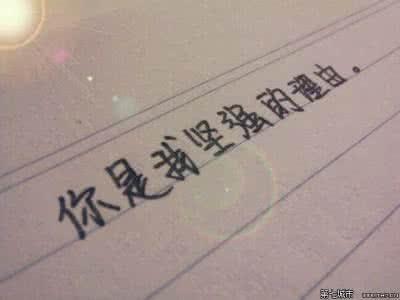 你是我坚强的理由。
第七城市